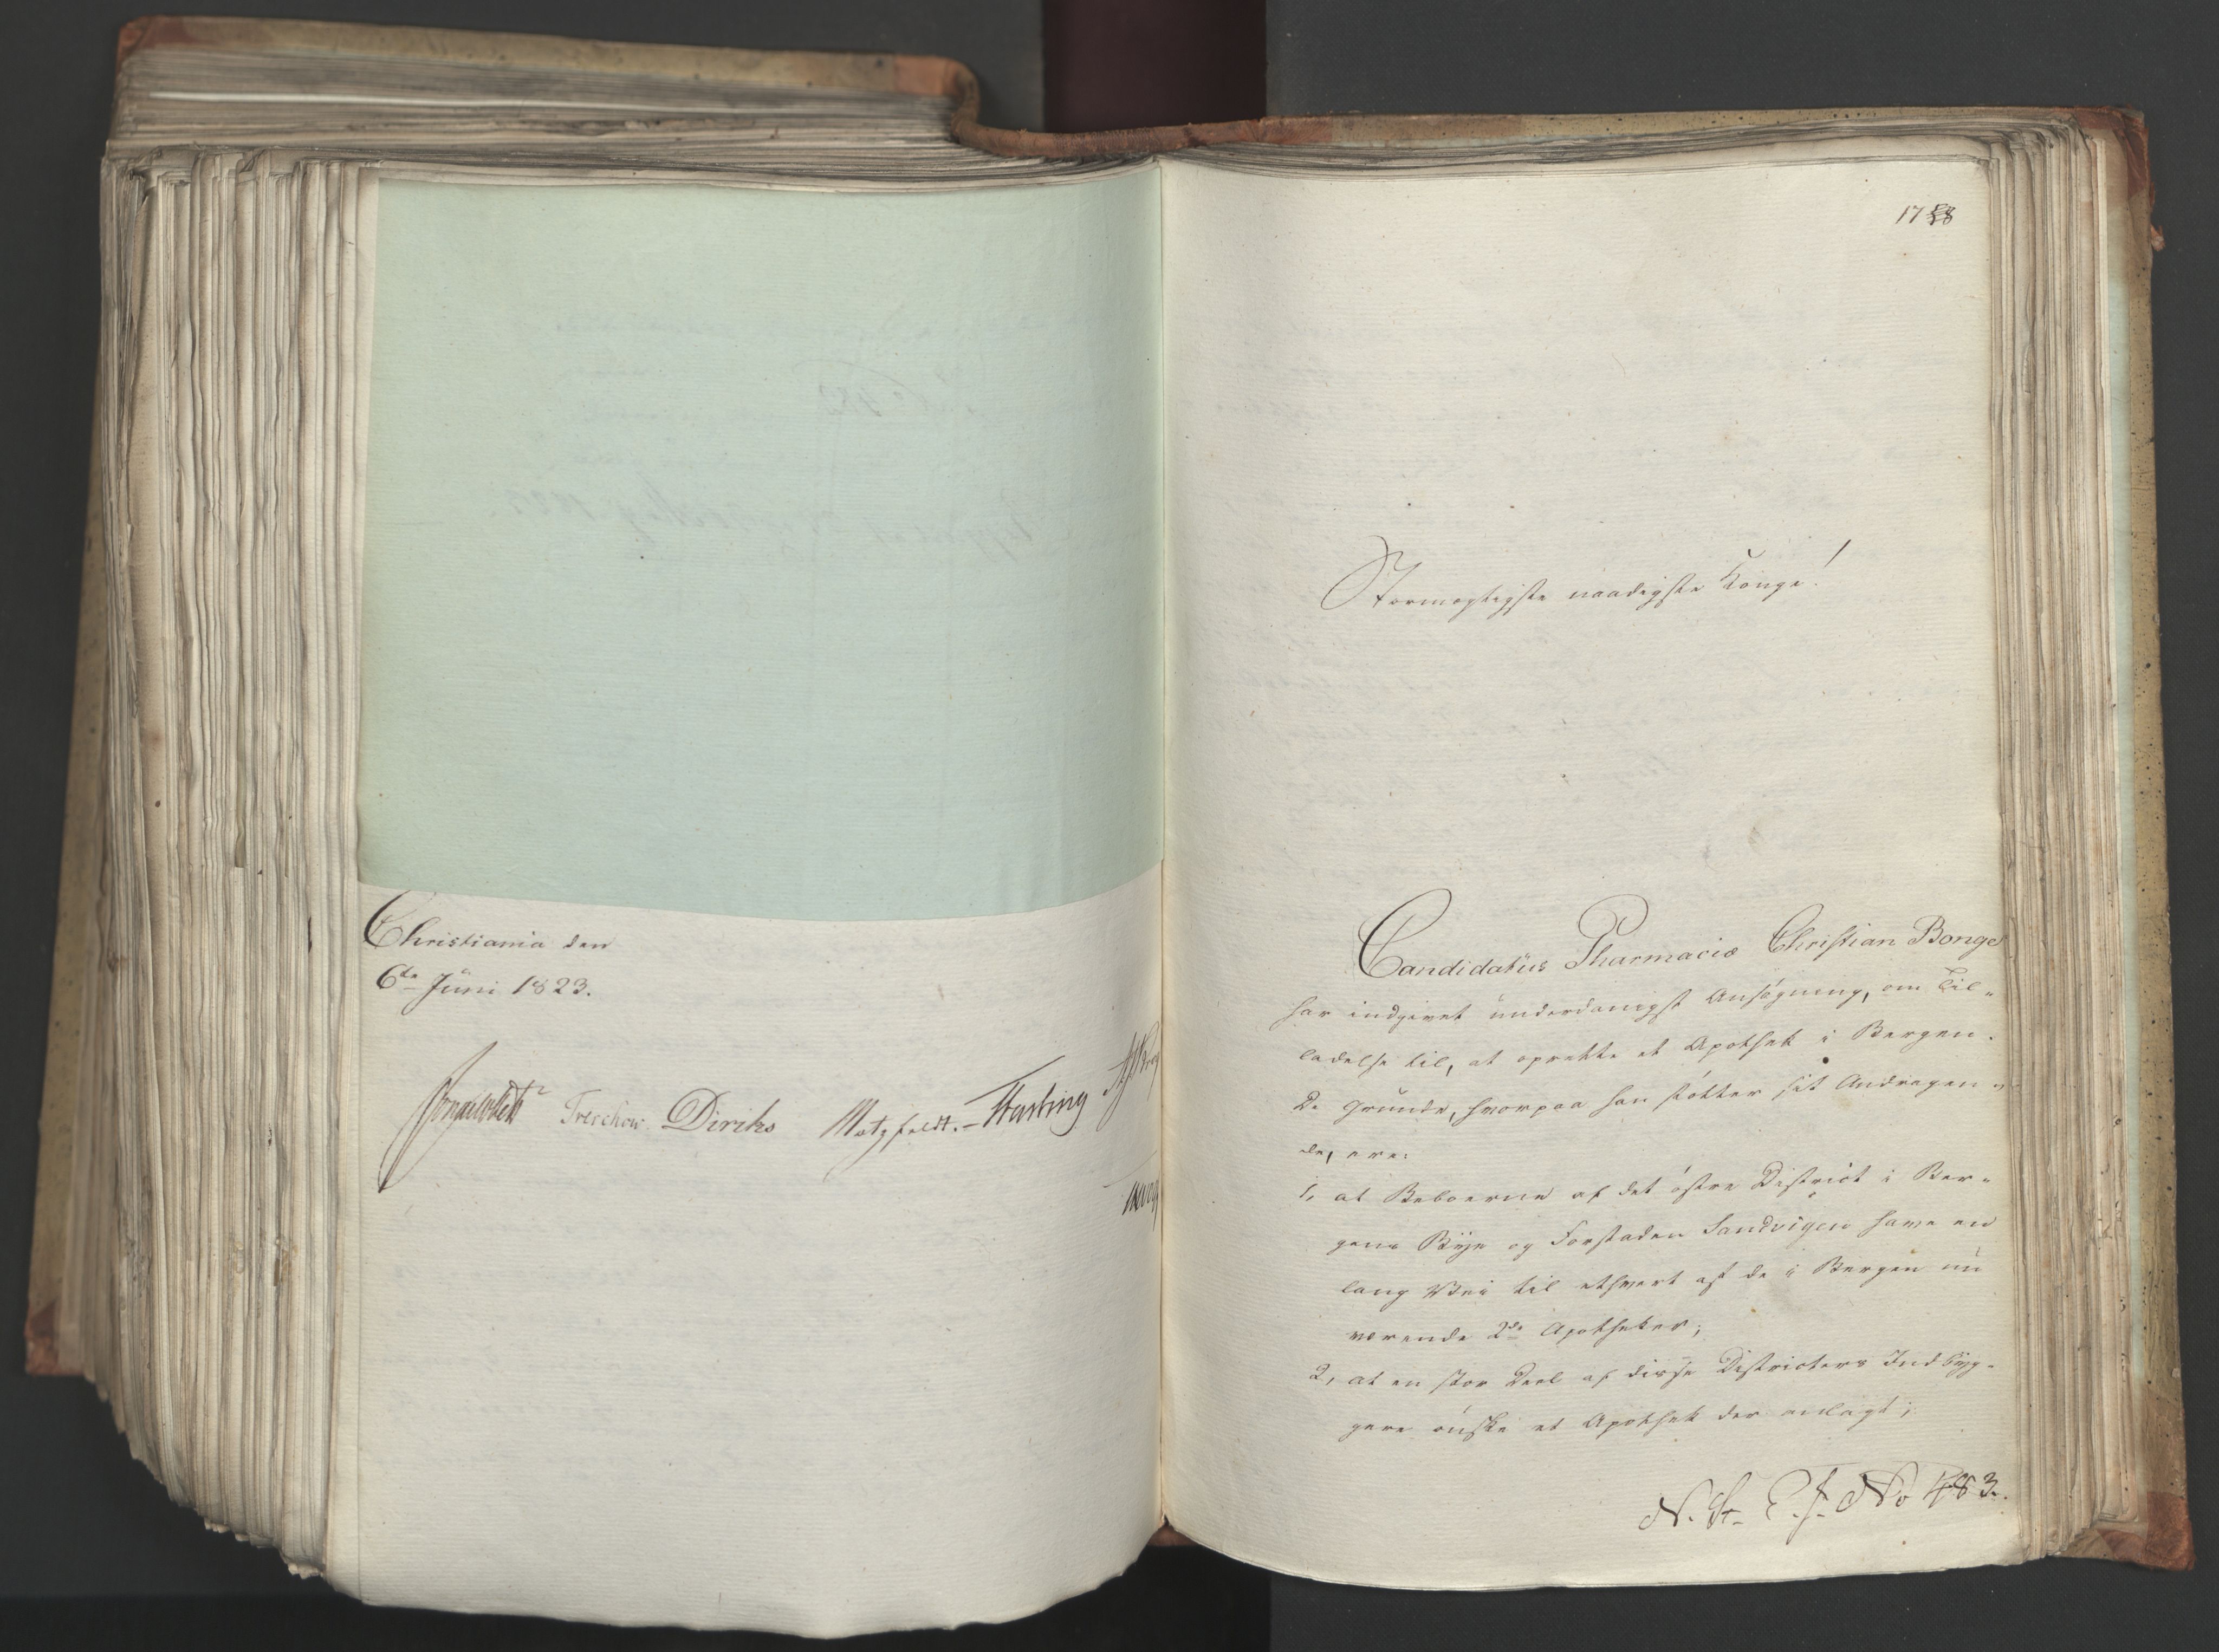 Christiania den
6te Juni 1823.
Treschow Diriks Motzfeldt. Fasting
1758
Stormægtigste naadigste Konge!
Candidatus Pharmaciæ Christian Bonge
har indgivet underdanigst Ansøgning, om Til-
ladelse til, at oprette et Apothek i Bergen.
De Grunde, hvorpaa han støtter sit Andragen-
de, ere:
1, at Beboerne af det østre District i Ber-
gens Bye og Forstaden Sandvigen have en
lang Vei til ethvert af de i Bergen nu
værende 2de Apotheker;
2, at en stor Deel af disse Districters Indbyg-
gere ønske et Apothek der anlagt;
N. St. E. J. No 483.